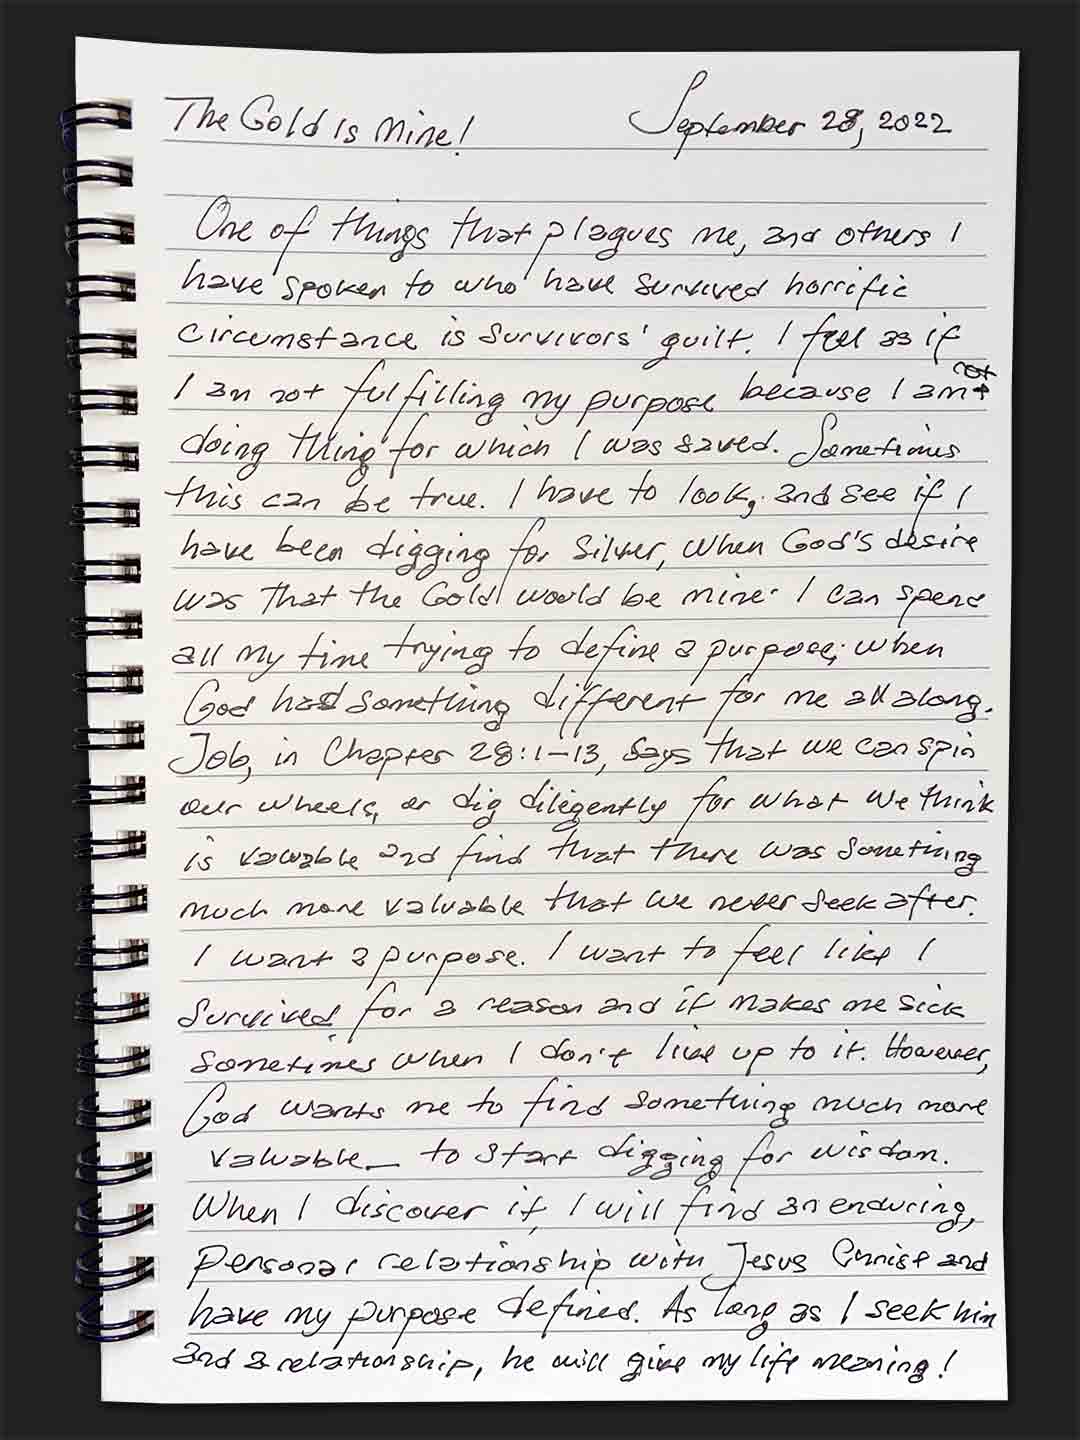 The Gold Is Mine! September 28, 2022
One of things that plagues me, and others I
have spoken to who have survived horrific
circumstance is survivors' guilt. I feel as if
I am not fulfilling my purpose because I am not
doing thing for which I was saved. Sometimes
this can be true. I have to look, and see if I
have been digging for silver, when God's desire
was that the Gold would be mine. I can spend
all my time trying to define a purpose; when
God had something different for me all along.
Job, in Chapter 28:1-13, says that we can spin
our wheels, or dig diligently for what we think
is valuable and find that there was something
much more valuable that we never seek after.
I want a purpose. I want to feel like I
survived for a reason and it makes me sick
sometimes when I don't live up to it. However,
God wants me to find something much more
valuable— to start digging for wisdom.
When I discover it, I will find an enduring,
personal relationship with Jesus Christ and
have my purpose defined. As long as I seek him
and a relationship, he will give my life meaning!